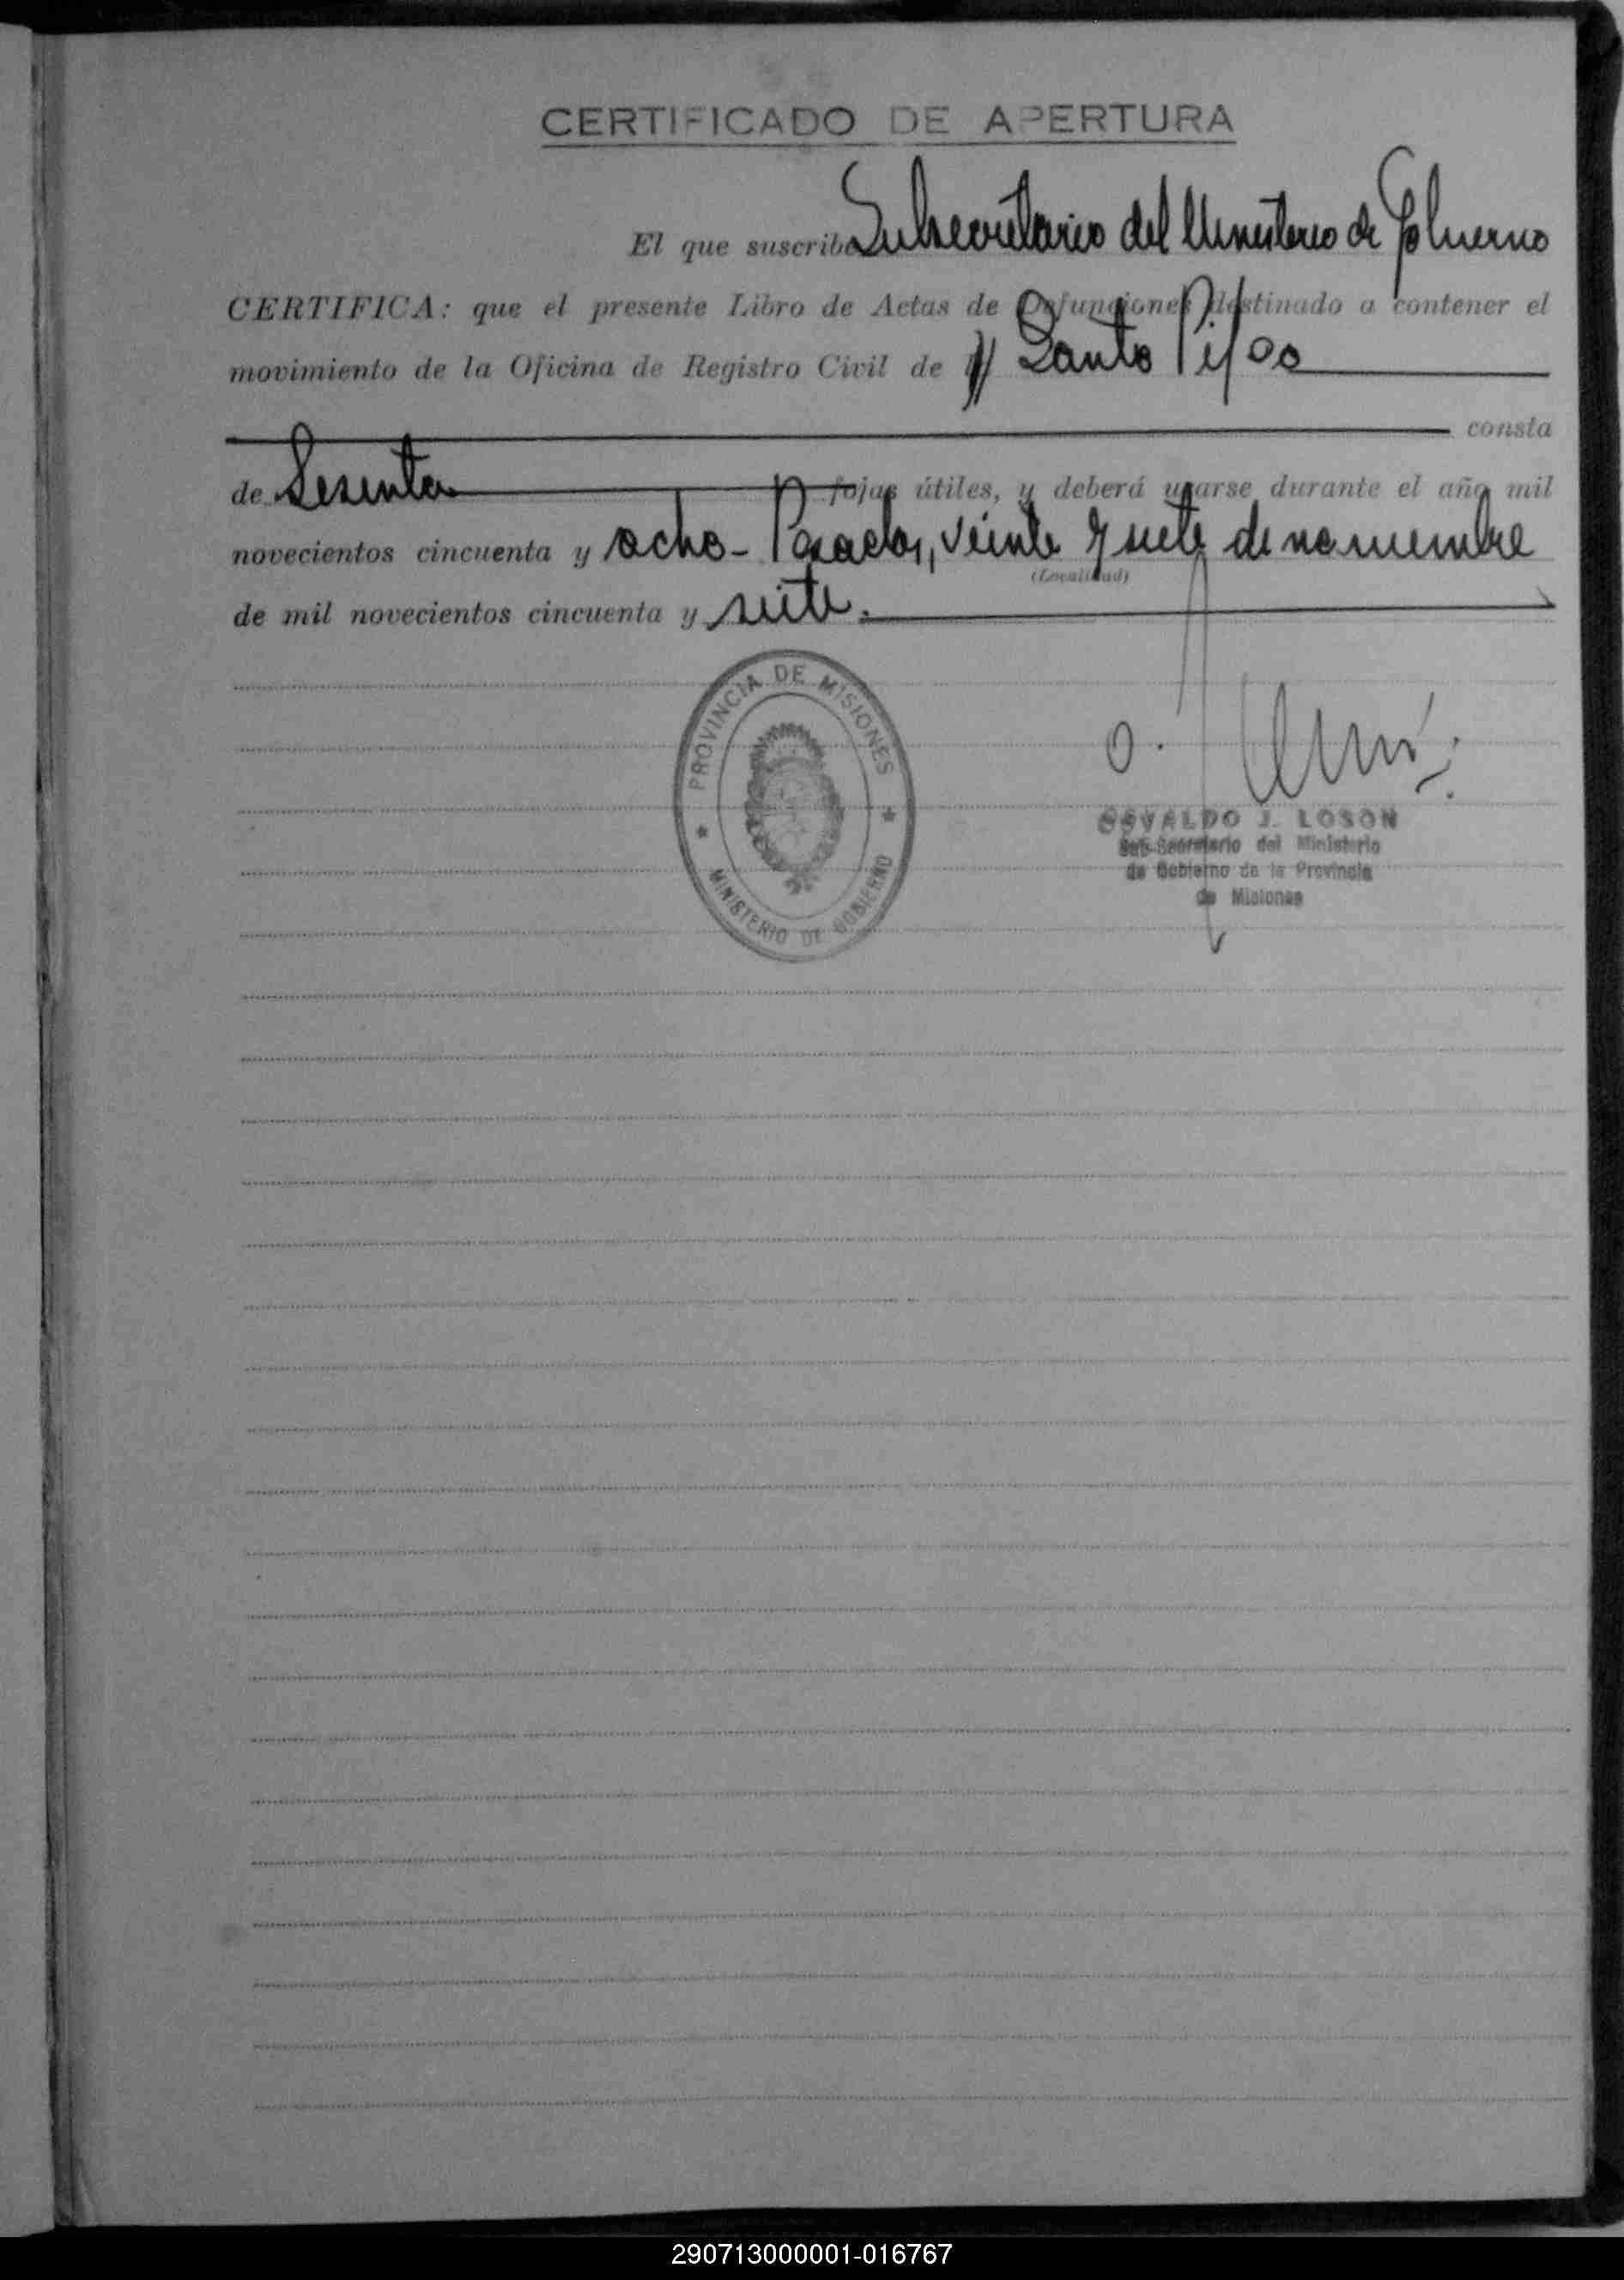 CERTIFICADO DE APERTURA
El que suscribe Subsecretario del Ministerio de Gobierno
CERTIFICA: que el presente Libro de Actas de Defunciones destinado a contener el
movimiento de la Oficina de Registro Civil de Santo Pipo
consta
de Sesenta fojas útiles, y deberá usarse durante el año mil
novecientos cincuenta y ocho - Posadas, veinte y siete de noviembre
(Localidad)
de mil novecientos cincuenta y siete.
PROVINCIA DE MISIONES
MINISTERIO DE GOBIERNO
OSVALDO J. LOSON
Sub-Secretario del Ministerio
de Gobierno de la Provincia
de Misiones
290713000001-016767